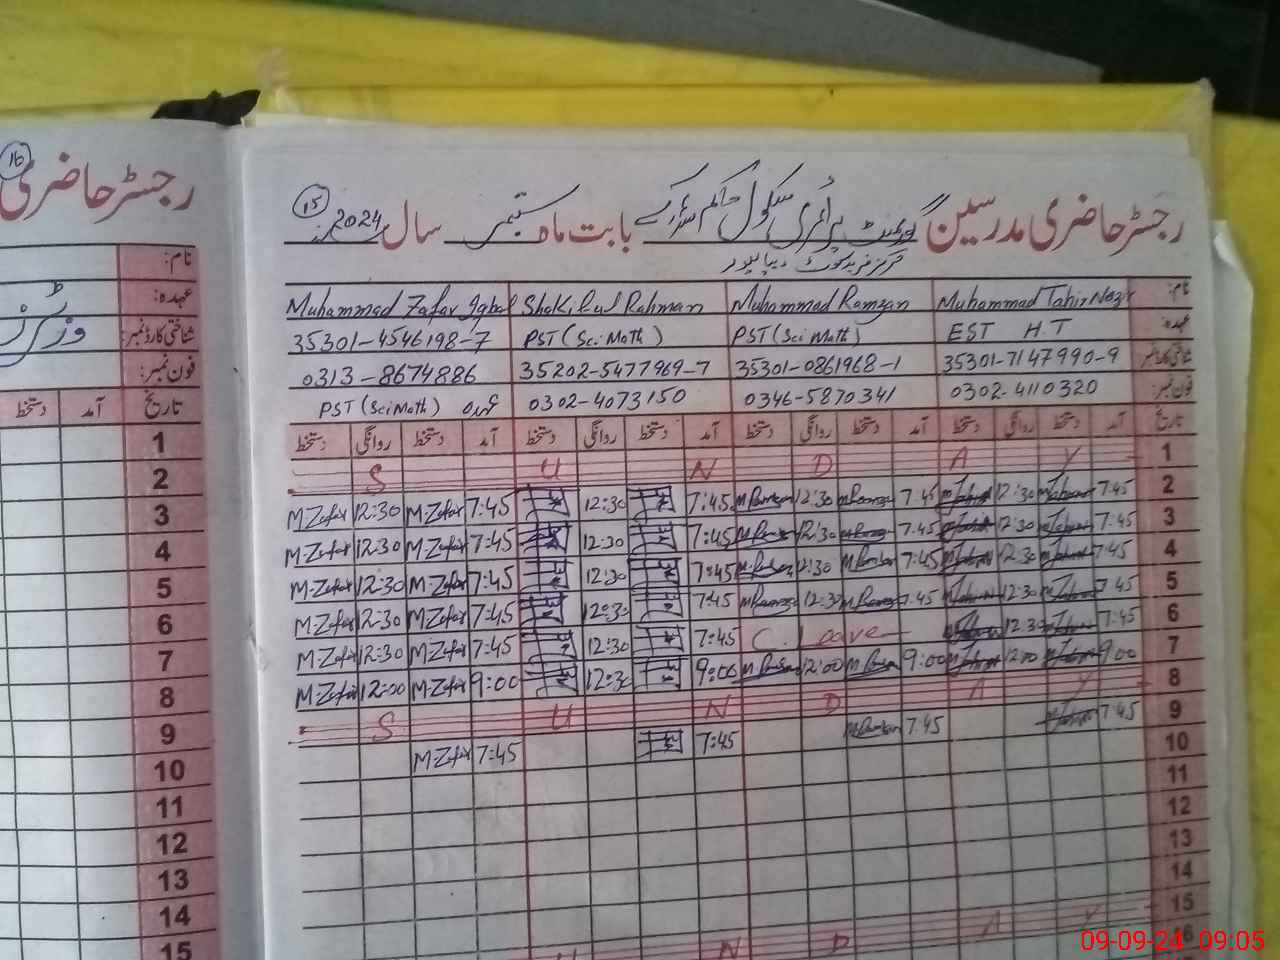 رجسٹر حاضری مدرسین گورنمنٹ پرائمری سکول حاکم بابت ماہ ستمبر سال 2024
15
مرکز فرید کوٹ دیپالپور
نام: Muhammad Tahir Nazir Muhammad Ramzan Shakil ul Rahman Muhammad Zafar Iqbal
عہدہ: EST H.T PST (Sci Math) PST (Sci Math) 35301-4546198-7
شناختی کارڈ نمبر: 35301-7147990-9 35301-0861968-1 35202-5477969-7 0313-8674886
فون نمبر: 0302-4110320 0346-5870341 0302-4073150 عہدہ PST (Sci Math)
تاریخ آمد دستخط روانگی دستخط آمد دستخط روانگی دستخط آمد دستخط روانگی دستخط آمد دستخط روانگی دستخط
1 S U N D A Y
2 7:45 12:30 7:45 M Ramzan 12:30 M Ramzan 7:45 12:30 7:45 M-Zafar 12:30 M-Zafar
3 7:45 12:30 7:45 12:30 7:45 12:30 7:45 M-Zafar 12:30 M-Zafar
4 7:45 12:30 7:45 12:30 7:45 12:30 7:45 M-Zafar 12:30 M-Zafar
5 7:45 12:30 7:45 12:30 7:45 12:30 7:45 M-Zafar 12:30 M-Zafar
6 7:45 12:30 C. Leave 7:45 12:30 7:45 M-Zafar 12:30 M-Zafar
7 9:00 12:00 9:00 12:00 9:00 12:30 9:00 M-Zafar 12:00 M-Zafar
8 S U N D A Y
9 7:45 7:45 7:45 7:45 M-Zafar
10
11
12
13
14
15 N D A Y
16
رجسٹر حاضری
16
نام:
عہدہ:
شناختی کارڈ نمبر: وزیٹرز
فون نمبر:
تاریخ آمد دستخط
1
2
3
4
5
6
7
8
9
10
11
12
13
14
15
09-09-24 09:05